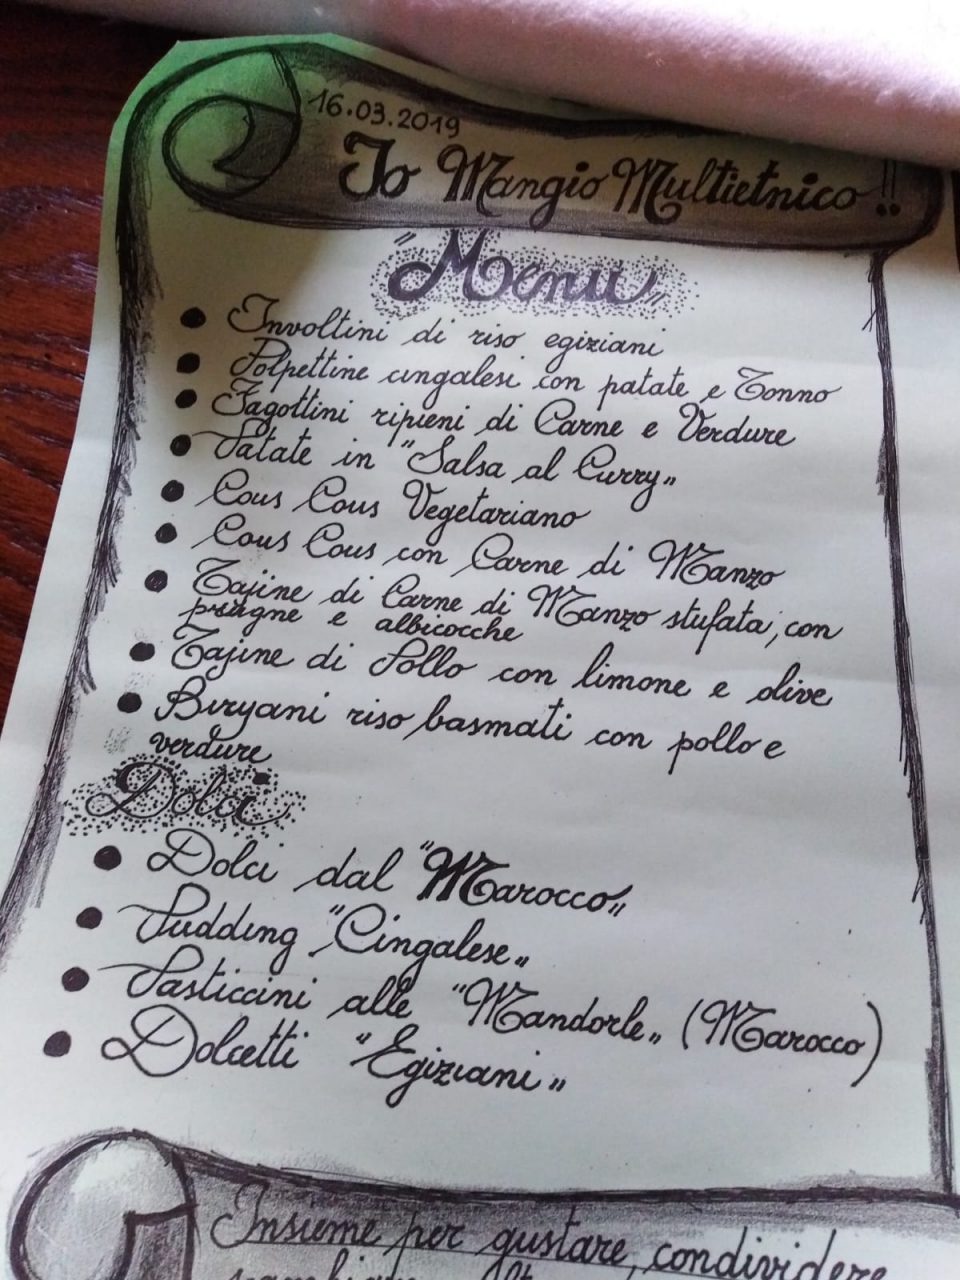 16.03.2019
Io Mangio Multietnico!!
"Menu"
• Involtini di riso egiziani
• Polpettine cingalesi con patate e Tonno
• Fagottini ripieni di Carne e Verdure
• Patate in "Salsa al Curry"
• Cous Cous Vegetariano
• Cous Cous con Carne di Manzo
• Tajine di Carne di Manzo stufata, con
prugne e albicocche
• Tajine di Pollo con limone e olive
• Biryani riso basmati con pollo e
verdure
Dolci
• Dolci dal "Marocco"
• Pudding "Cingalese"
• Pasticcini alle "Mandorle" (Marocco)
• Dolcetti "Egiziani"
Insieme per gustare, condividere